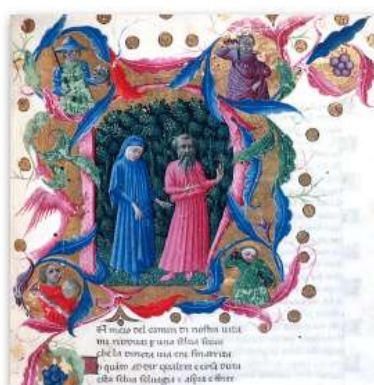 del camin di nostra uita
mi ritrouai p una silua scura
che la uia era smarrita
qual era e cosa dura
esta silua seluagia e aspra e forte